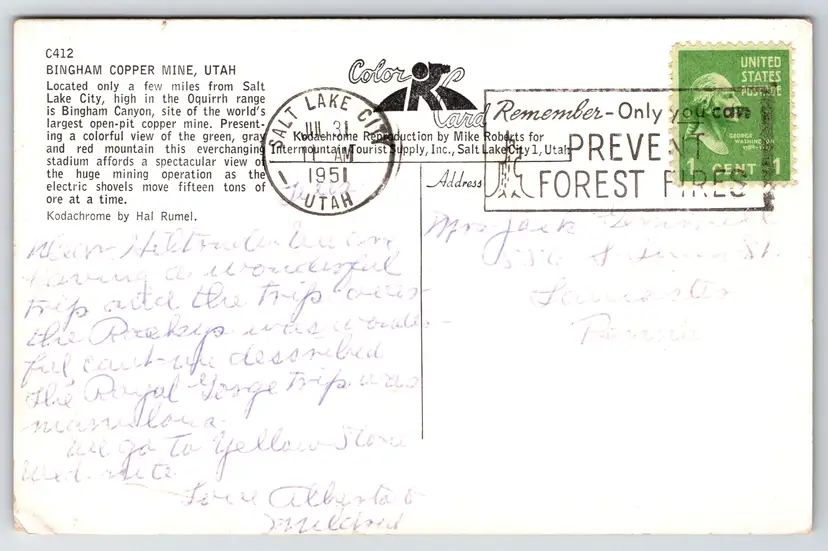 C412
BINGHAM COPPER MINE, UTAH
Located only a few miles from Salt
Lake City, high in the Oquirrh range
is Bingham Canyon, site of the world's
largest open-pit copper mine. Present-
ing a colorful view of the green, gray
and red mountain this everchanging
stadium affords a spectacular view of
the huge mining operation as the
electric shovels move fifteen tons of
ore at a time.
Kodachrome by Hal Rumel.
Color
Card
Kodachrome Reproduction by Mike Roberts for
Intermountain Tourist Supply, Inc., Salt Lake City 1, Utah
SALT LAKE CITY
JUL 31
11 AM
1951
UTAH
Remember-Only you can
PREVENT
FOREST FIRES
UNITED
STATES
POSTAGE
GEORGE
WASHINGTON
1 CENT 1
Address
Dear
having a wonderful
trip and the trip over
the was wonder-
ful
the Royal Gorge trip was
We go to Yellow Stone
Wed.
Love Alberta &
Mildred
Mrs Jack
St.
Lancaster
Penna